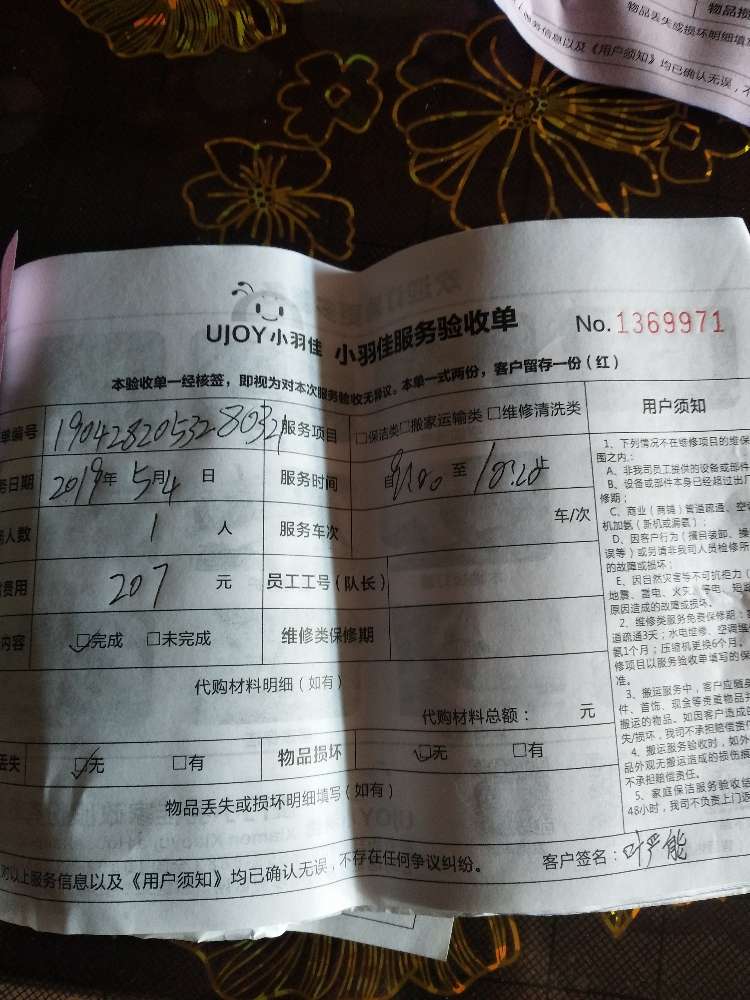 物品丢失或损坏明细填
信息以及《用户须知》均已确认无误，不
UJOY小羽佳 小羽佳服务验收单 No.1369971
本验收单一经核签，即视为对本次服务验收无异议。本单一式两份，客户留存一份（红）
单编号 服务项目 □保洁类□搬家运输类□维修清洗类 用户须知
日期 2019年 5月4 日 服务时间 自 至
人数 1 人 服务车次 车/次
费用 207 元 员工工号（队长）
内容 □完成 □未完成 维修类保修期
代购材料明细（如有）
代购材料总额： 元
丢失 □无 □有 物品损坏 □无 □有
物品丢失或损坏明细填写（如有）
对以上服务信息以及《用户须知》均已确认无误，不存在任何争议纠纷。 客户签名：
1、下列情况不在维修项目的维保
图之内：
A、非我司员工提供的设备或部件
B、设备或部件本身已经超过出厂
修期；
C、商业（商铺）管道疏通、空
机加氨（新机或漏氨）；
D、因客户行为（擅自装卸、操
误等）或另请非我司人员检修所
的故障或损坏；
E、因自然灾害等不可抗拒力（
地震、雷电、火灾、停电、短
原因造成的故障或损坏。
2、维修类服务免费保修期：
道疏通3天；水电维修、空调
氨1个月；压缩机更换6个月。
修项目以服务验收单填写的保
准。
3、搬运服务中，客户应随身
件、首饰、现金等贵重物品
搬运的物品。如因客户造成的
失/损坏，我司不承担赔偿责
4、搬运服务验收时，如外
品外观无搬运造成的损伤痕
不承担赔偿责任。
5、家庭保洁服务验收
48小时，我司不负责上门返